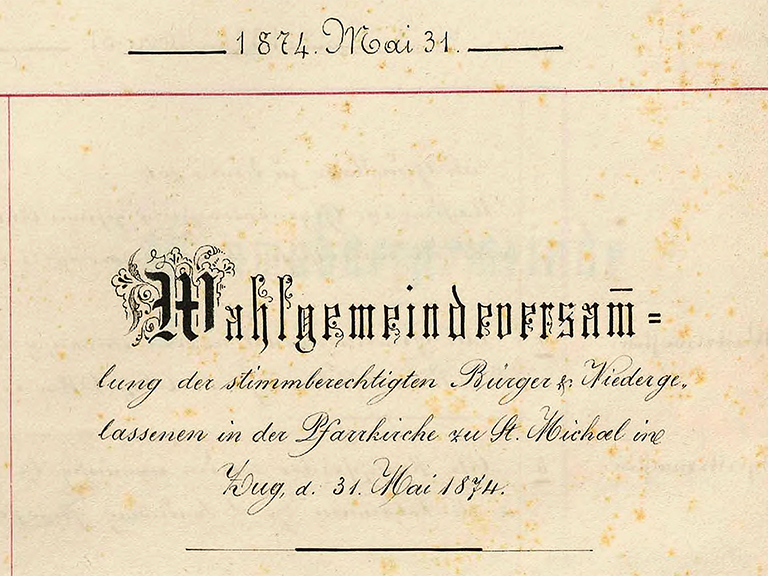 1874. Mai 31.
Wahlgemeindeversam̅=
lung der stimmberechtigten Bürger & Niederge-
lassenen in der Pfarrkirche zu St. Michael in
Zug, d. 31. Mai 1874.